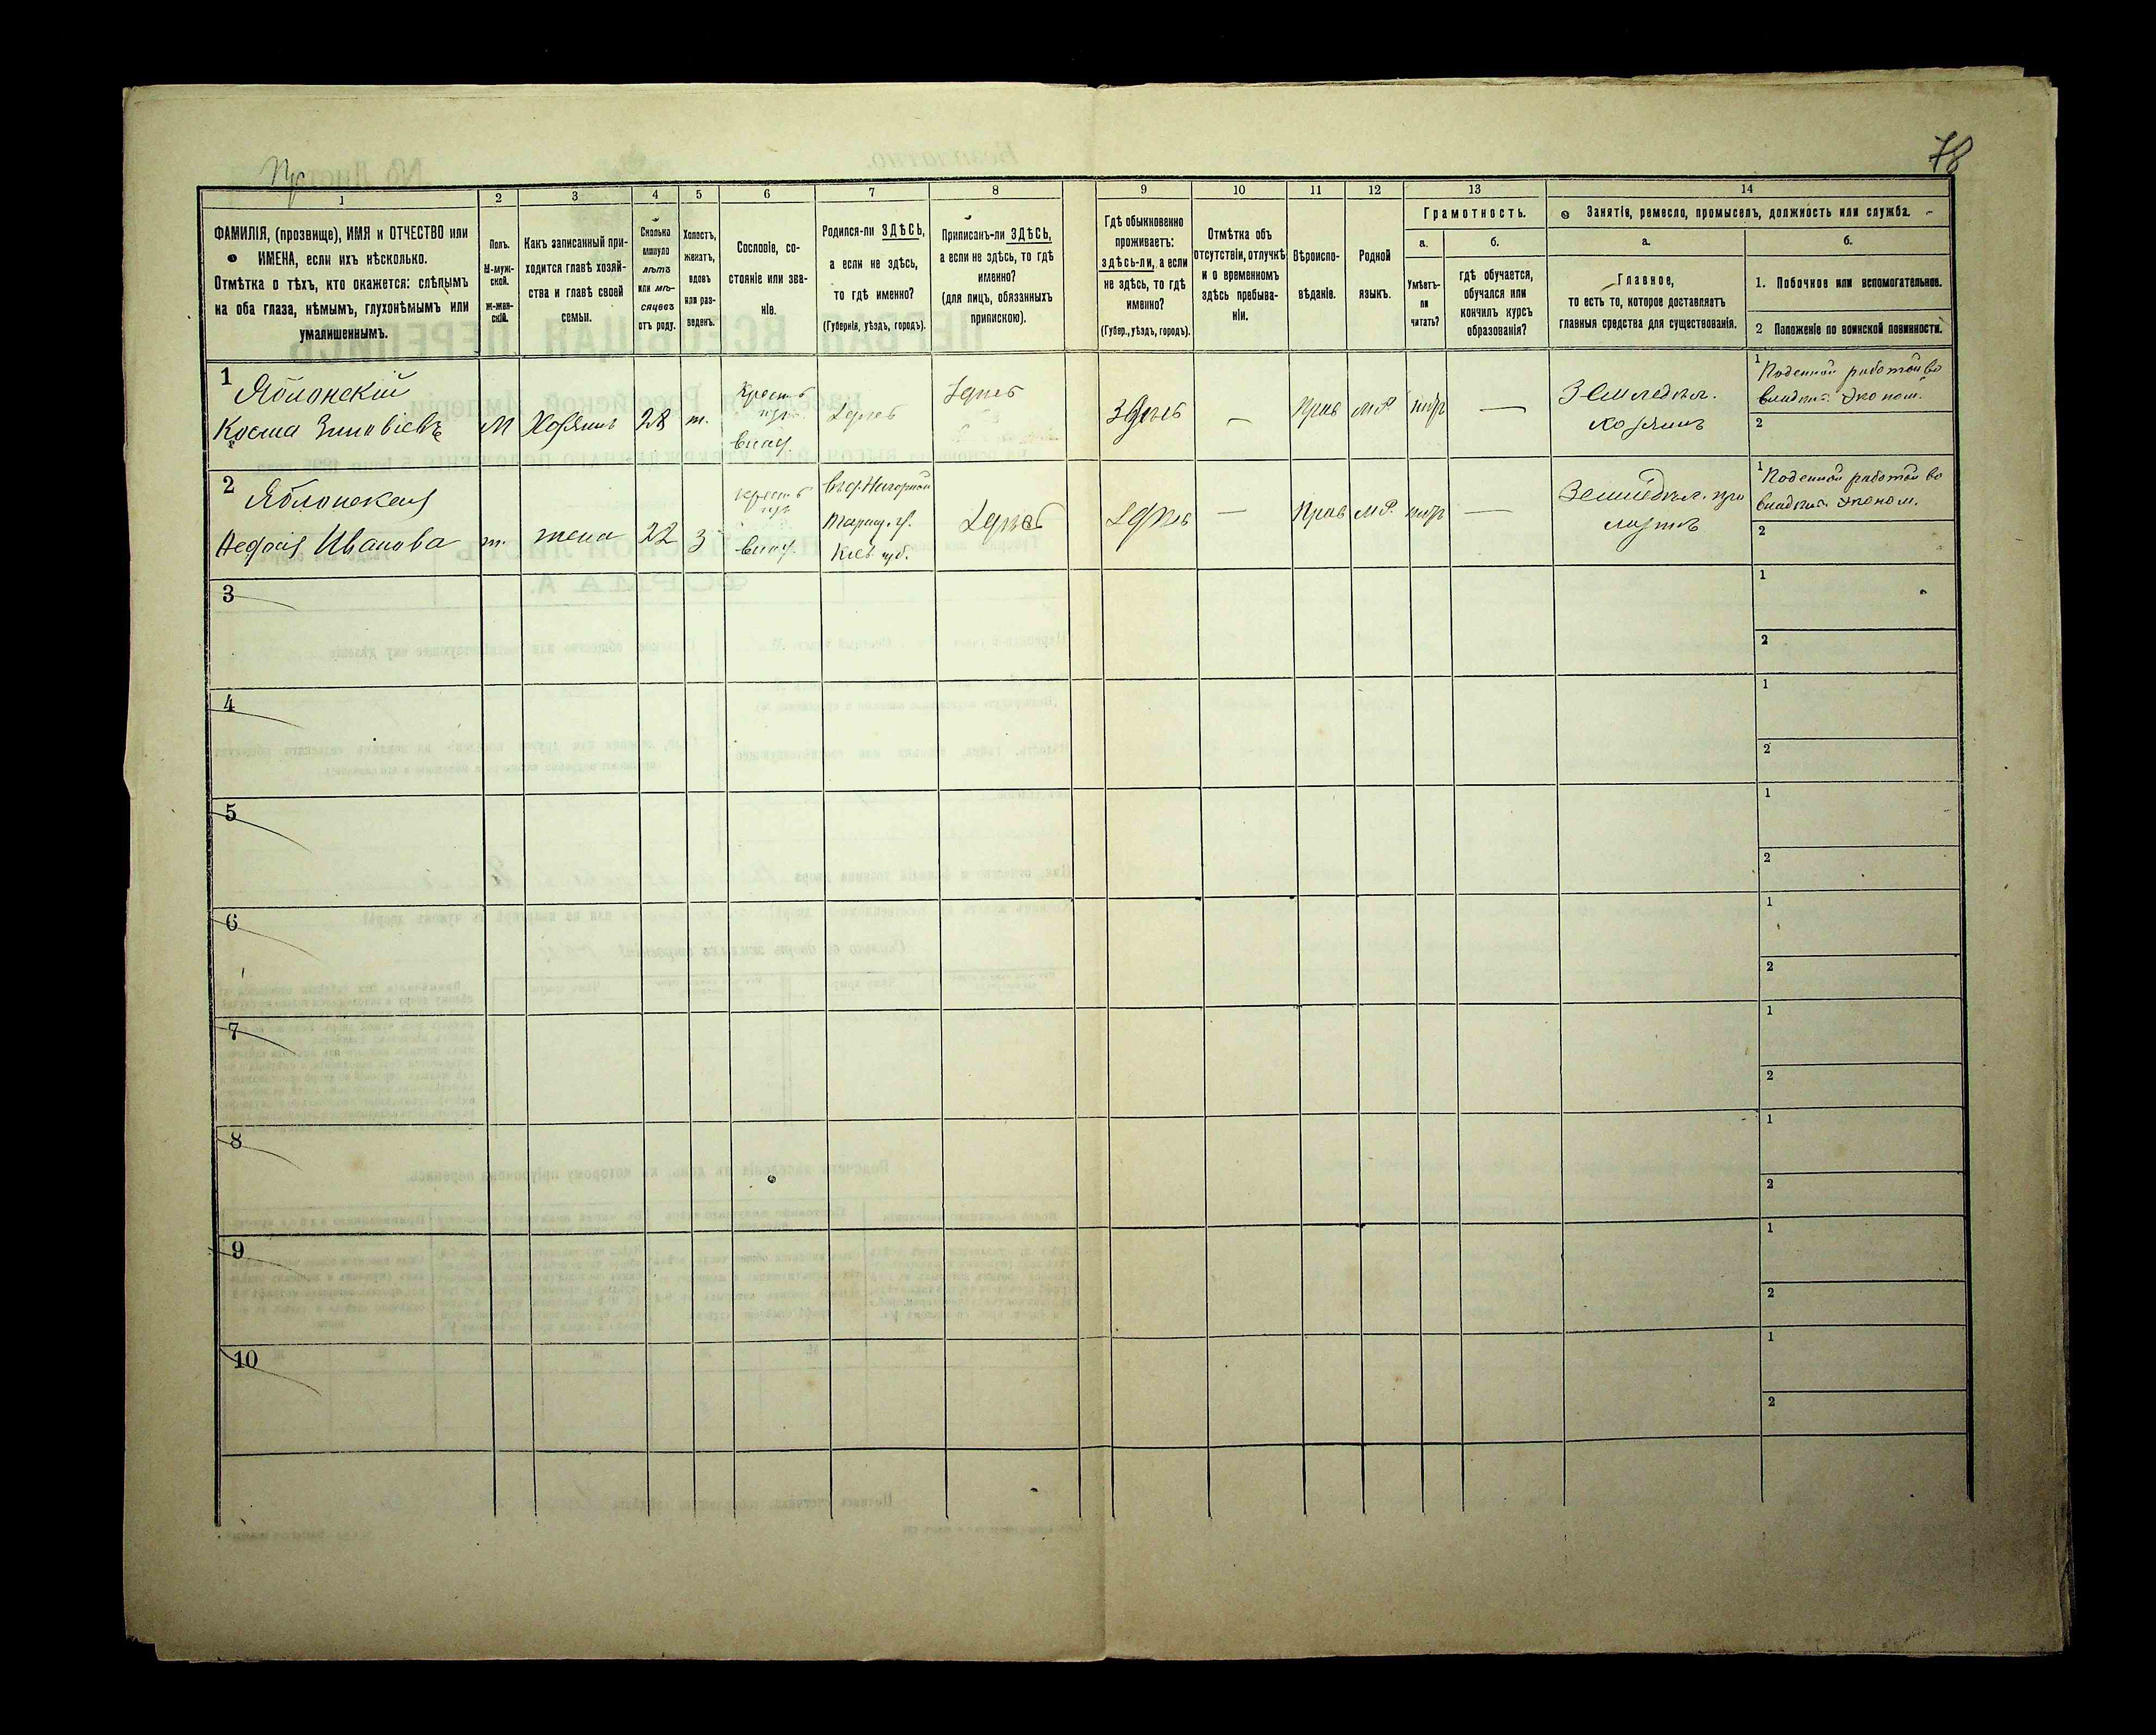 78
1
2
3
4
5
6
7
8
9
10
11
12
13
14
ФАМИЛІЯ, (прозвище), ИМЯ и ОТЧЕСТВО или
ИМЕНА, если ихъ нѣсколько.
Отмѣтка о тѣхъ, кто окажется: слѣпымъ
на оба глаза, нѣмымъ, глухонѣмымъ или
умалишеннымъ.
Полъ.
М-муж-
ской.
Ж-жен-
скій.
Какъ записанный при-
ходится главѣ хозяй-
ства и главѣ своей
семьи.
Сколько
минуло
лѣтъ
или мѣ-
сяцевъ
отъ роду.
Холостъ,
женатъ,
вдовъ
или раз-
веденъ.
Сословіе, со-
стояніе или зва-
ніе.
Родился-ли ЗДѢСЬ,
а если не здѣсь,
то гдѣ именно?
(Губернія, уѣздъ, городъ).
Приписанъ-ли ЗДѢСЬ,
а если не здѣсь, то гдѣ
именно?
(для лицъ, обязанныхъ
припискою).
Гдѣ обыкновенно
проживаетъ:
здѣсь-ли, а если
не здѣсь, то гдѣ
именно?
(Губер., уѣздъ, городъ).
Отмѣтка объ
отсутствіи, отлучкѣ
и о временномъ
здѣсь пребыва-
ніи.
Вѣроиспо-
вѣданіе.
Родной
языкъ.
Грамотность.
а.
Умѣетъ-
ли
читать?
б.
гдѣ обучается,
обучался или
кончилъ курсъ
образованія?
Занятіе, ремесло, промыселъ, должность или служба.
а.
Главное,
то есть то, которое доставляетъ
главныя средства для существованія.
б.
1. Побочное или вспомогательное.
2 Положеніе по воинской повинности.
1
Яблонскій
Косма Зиновіевъ
М
Хозяинъ
28
ж.
Крест
Здѣсь
Здѣсь
Здѣсь
—
Прав
М.Р.
нѣтъ
—
Земледѣл.
хозяинъ
1 Поденной работой во
владѣл. эконом.
2
2
Яблонская
Ивановна
ж.
жена
22
З
Крест
Таращ. у.
Кіев. губ.
Здѣсь
Здѣсь
—
Прав
М.Р.
нѣтъ
—
Земледѣл. при
мужѣ
1 Поденной работой во
владѣл. эконом.
2
3
1
2
4
1
2
5
1
2
6
1
2
7
1
2
8
1
2
9
1
2
10
1
2